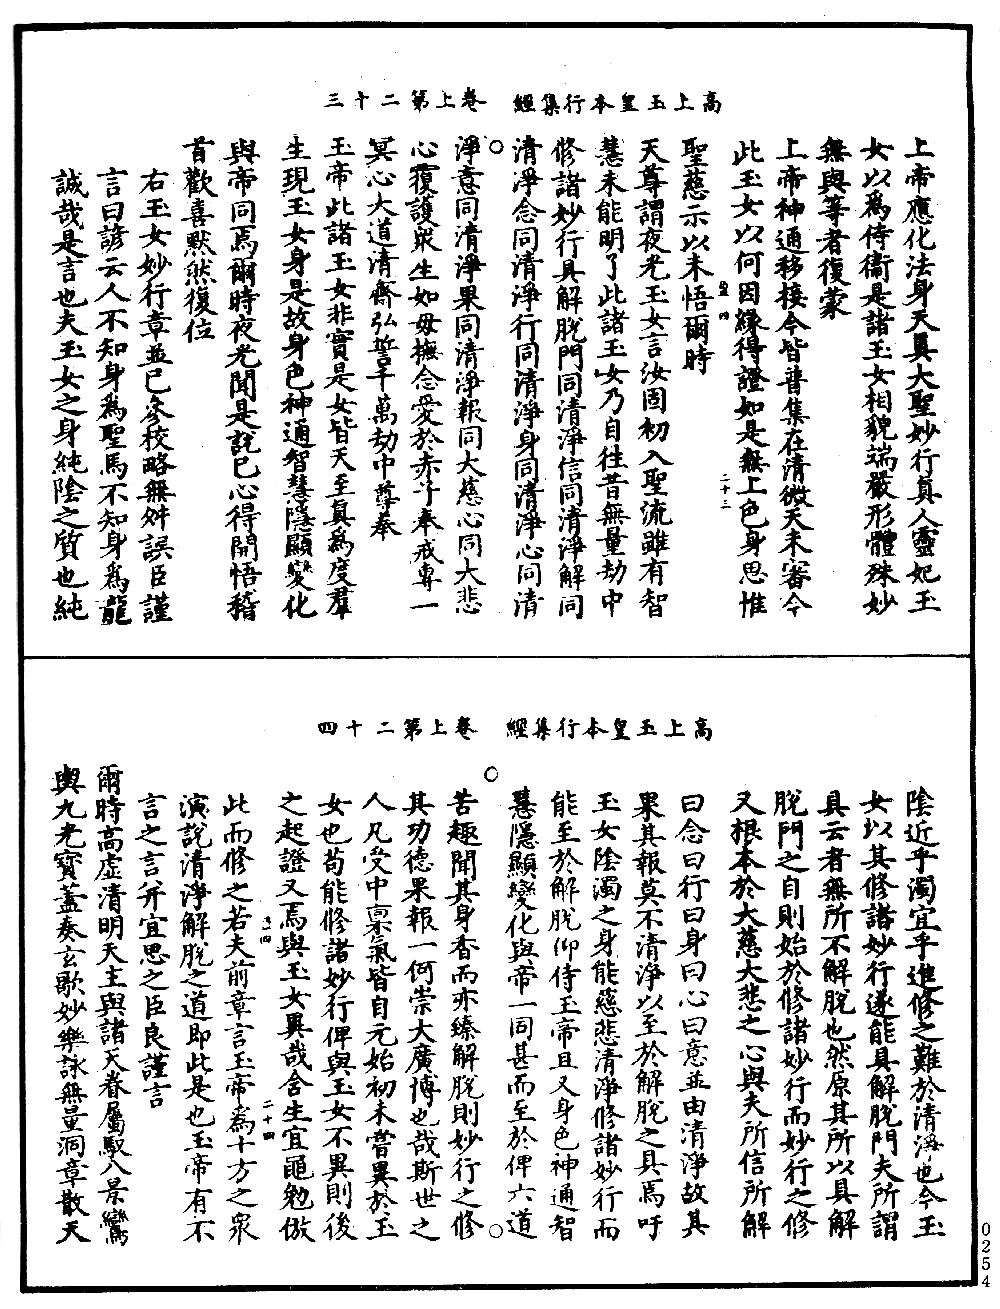 高上玉皇本行集經　卷上第二十三
上帝應化法身天真大聖妙行真人靈妃玉
女以為侍衛是諸玉女相貌端嚴形體殊妙
無與等者復蒙
上帝神通移接今皆普集在清微天未審今
此玉女以何因緣得證如是無上色身思惟
聖慈示以未悟爾時
天尊謂夜光玉女言汝固初入聖流雖有智
慧未能明了此諸玉女乃自往昔無量劫中
修諸妙行具解脫門同清淨信同清淨解同
清淨念同清淨行同清淨身同清淨心同清
淨意同清淨果同清淨報同大慈心同大悲
心覆護眾生如母撫念愛於赤子奉戒專一
冥心大道清齋弘誓千萬劫中尊奉
玉帝此諸玉女非實是女皆天至真為度羣
生現玉女身是故身色神通智慧隱顯變化
與帝同焉爾時夜光聞是說已心得開悟稽
首歡喜默然復位
右玉女妙行章並已參校略無舛誤臣謹
言曰諺云人不知身為聖馬不知身為龍
誠哉是言也夫玉女之身純陰之質也純
二十三
高上玉皇本行集經　卷上第二十四
陰近乎濁宜乎進修之難於清淨也今玉
女以其修諸妙行遂能具解脫門夫所謂
具云者無所不解脫也然原其所以具解
脫門之自則始於修諸妙行而妙行之修
又根本於大慈大悲之心與夫所信所解
曰念曰行曰身曰心曰意並由清淨故其
果其報莫不清淨以至於解脫之具焉吁
玉女陰濁之身能慈悲清淨修諸妙行而
能至於解脫仰侍玉帝且又身色神通智
慧隱顯變化與帝一同甚而至於俾六道
苦趣聞其身香而亦臻解脫則妙行之修
其功德果報一何崇大廣博也哉斯世之
人凡受中稟氣皆自元始初未嘗異於玉
女也苟能修諸妙行俾與玉女不異則後
之起證又焉與玉女異哉含生宜黽勉倣
此而修之若夫前章言玉帝為十方之眾
演說清淨解脫之道即此是也玉帝有不
言之言并宜思之臣良謹言
爾時高虛清明天主與諸天眷屬馭八景鸞
輿九光寶蓋奏玄歌妙樂詠無量洞章散天
二十四
0254